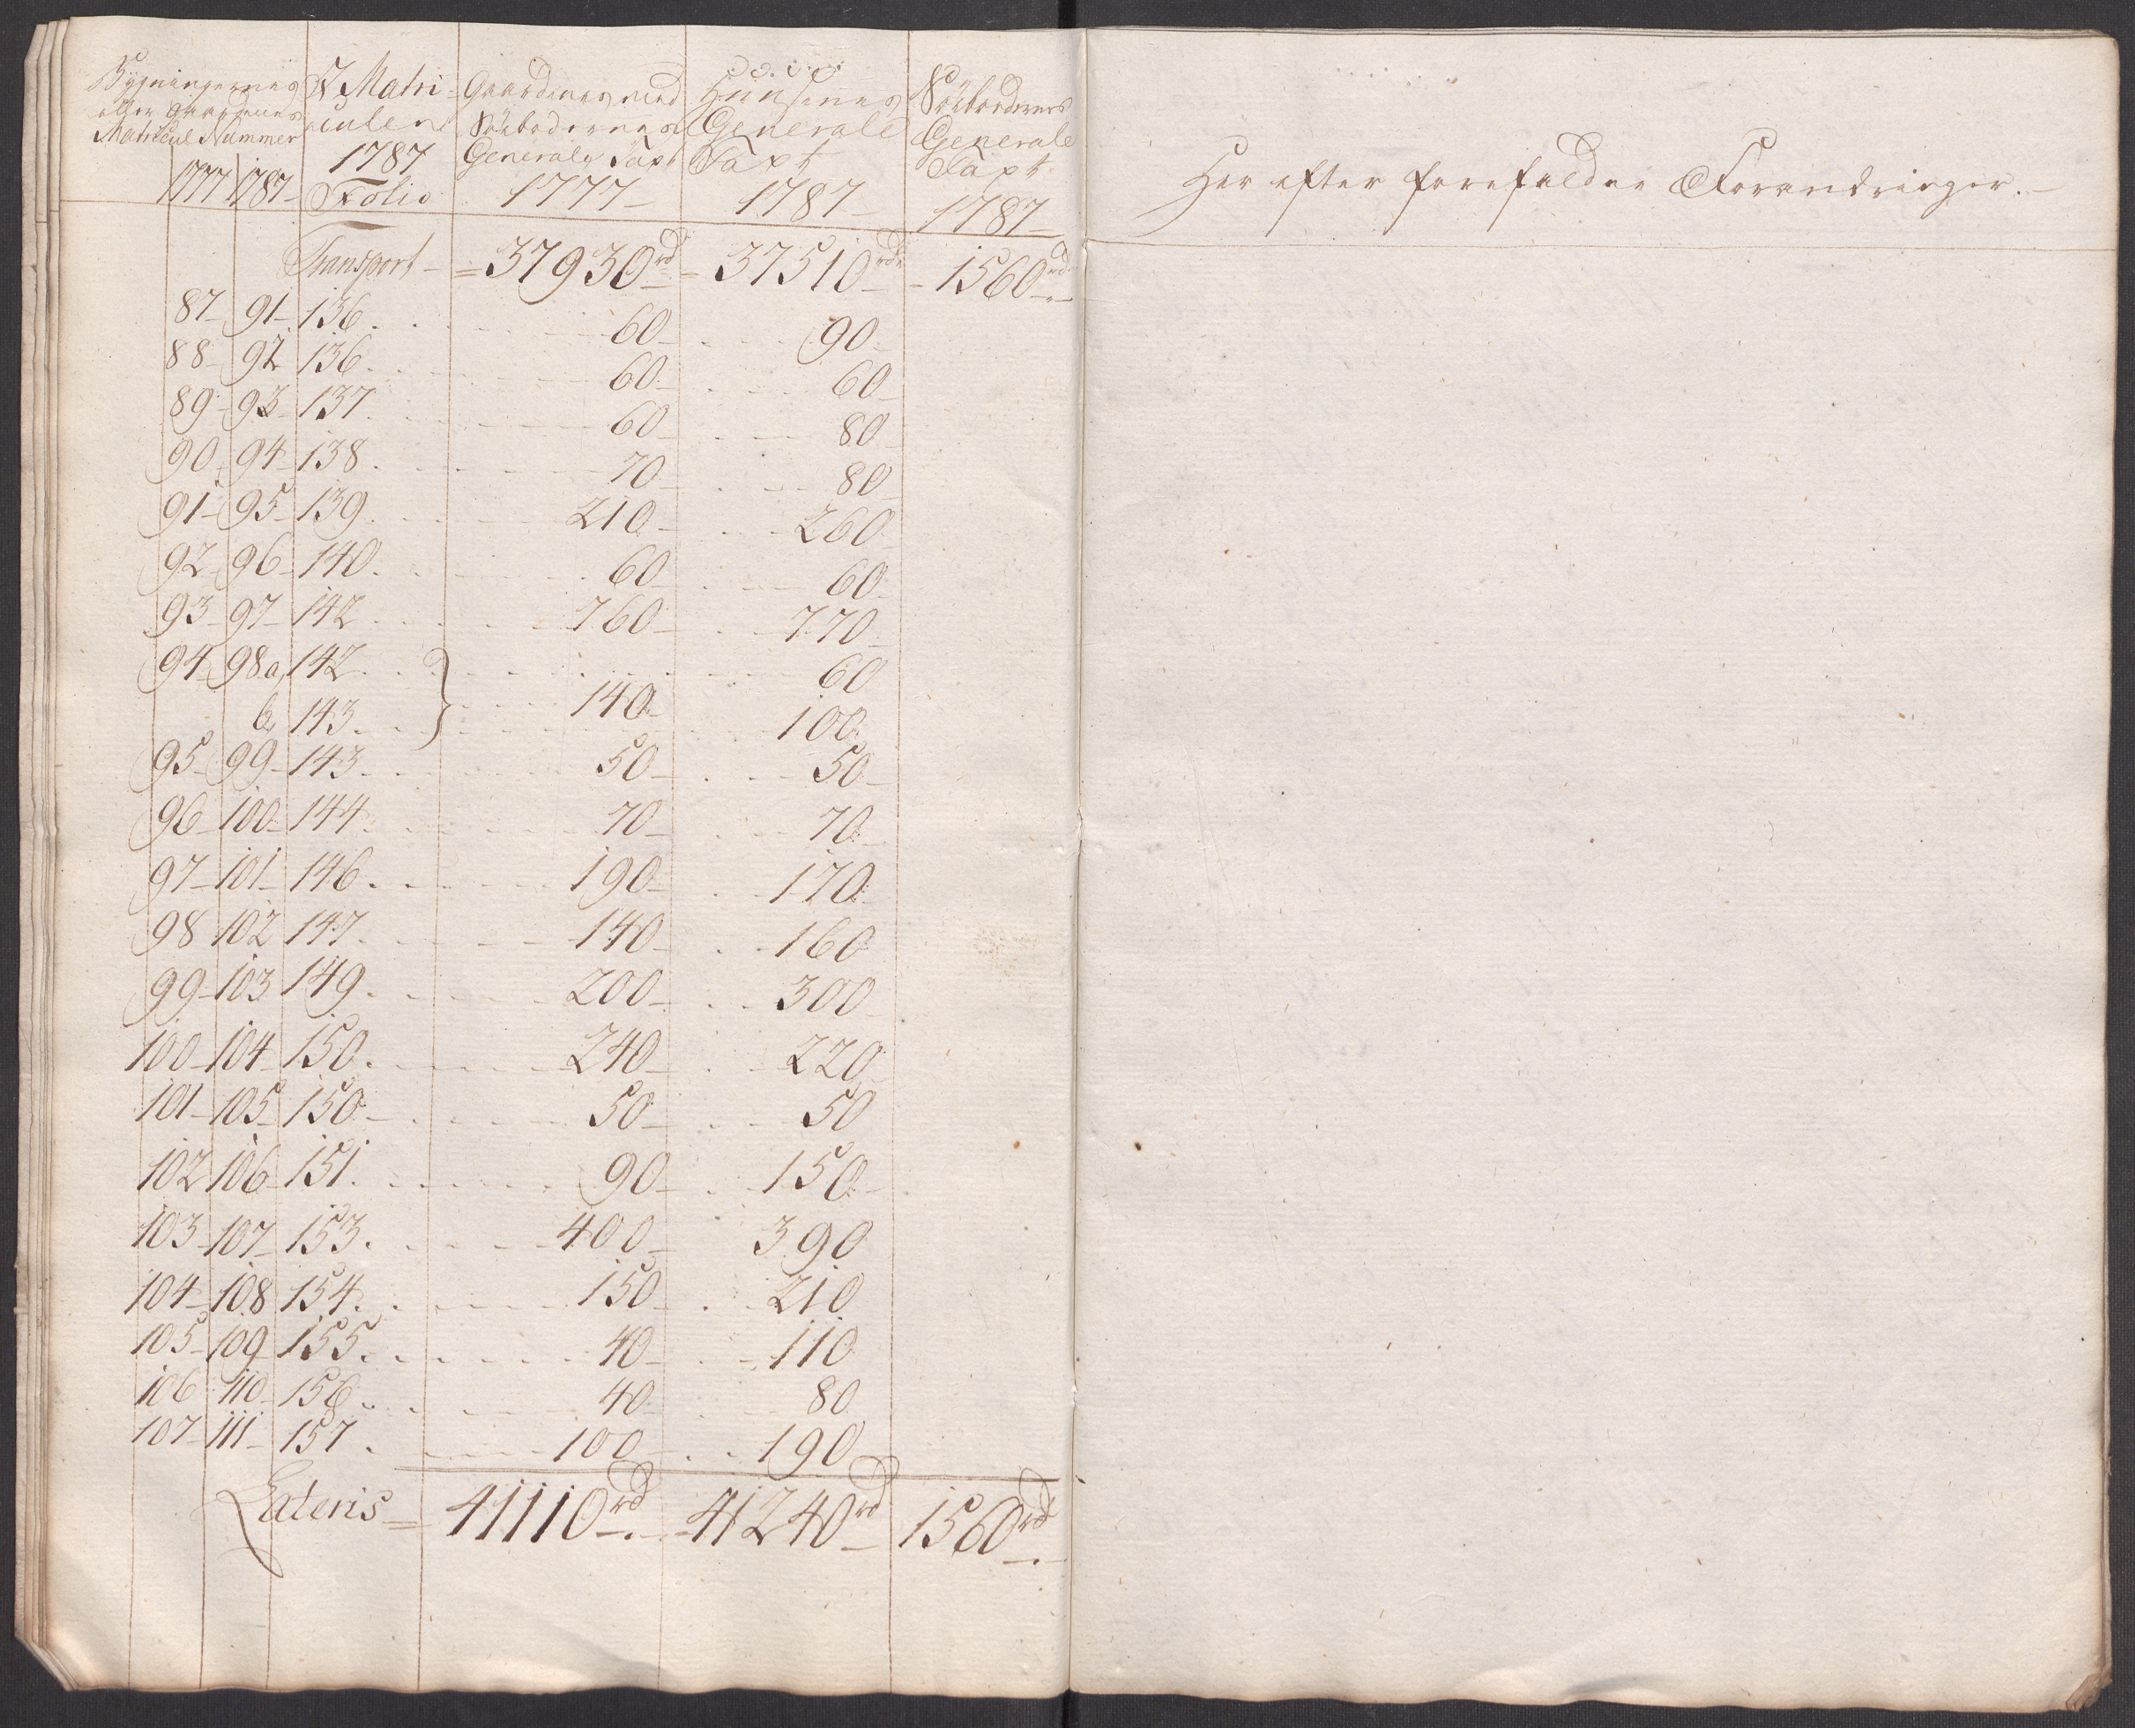 Bygningernes eller Gaardenes Matricul Nummer | I Matriculen 1787 Folio | Gaardenes med Söebodernes Generale Taxt 1777 | Huusenes Generale Taxt 1787 | Söebodernes Generale Taxt 1787
1777 | 1787
Transport = 37930 rd = 37510 rd - 1560 rd
87 91 136 60 90
88 92 136 60 60
89 93 137 60 80
90 94 138 70 80
91 95 139 210 260
92 96 140 60 60
93 97 142 760 770
94 98a, 142 60
b, 143 140 100
95 99 143 50 50
96 100 144 70 70
97 101 146 190 170
98 102 147 140 160
99 103 149 200 300
100 104 150 240 220
101 105 150 50 50
102 106 151 90 150
103 107 153 400 390
104 108 154 150 210
105 109 155 40 110
106 110 156 40 80
107 111 157 100 190
Lateris = 41110 rd 41240 rd 1560 rd
Her efter forefaldne Forandringer.